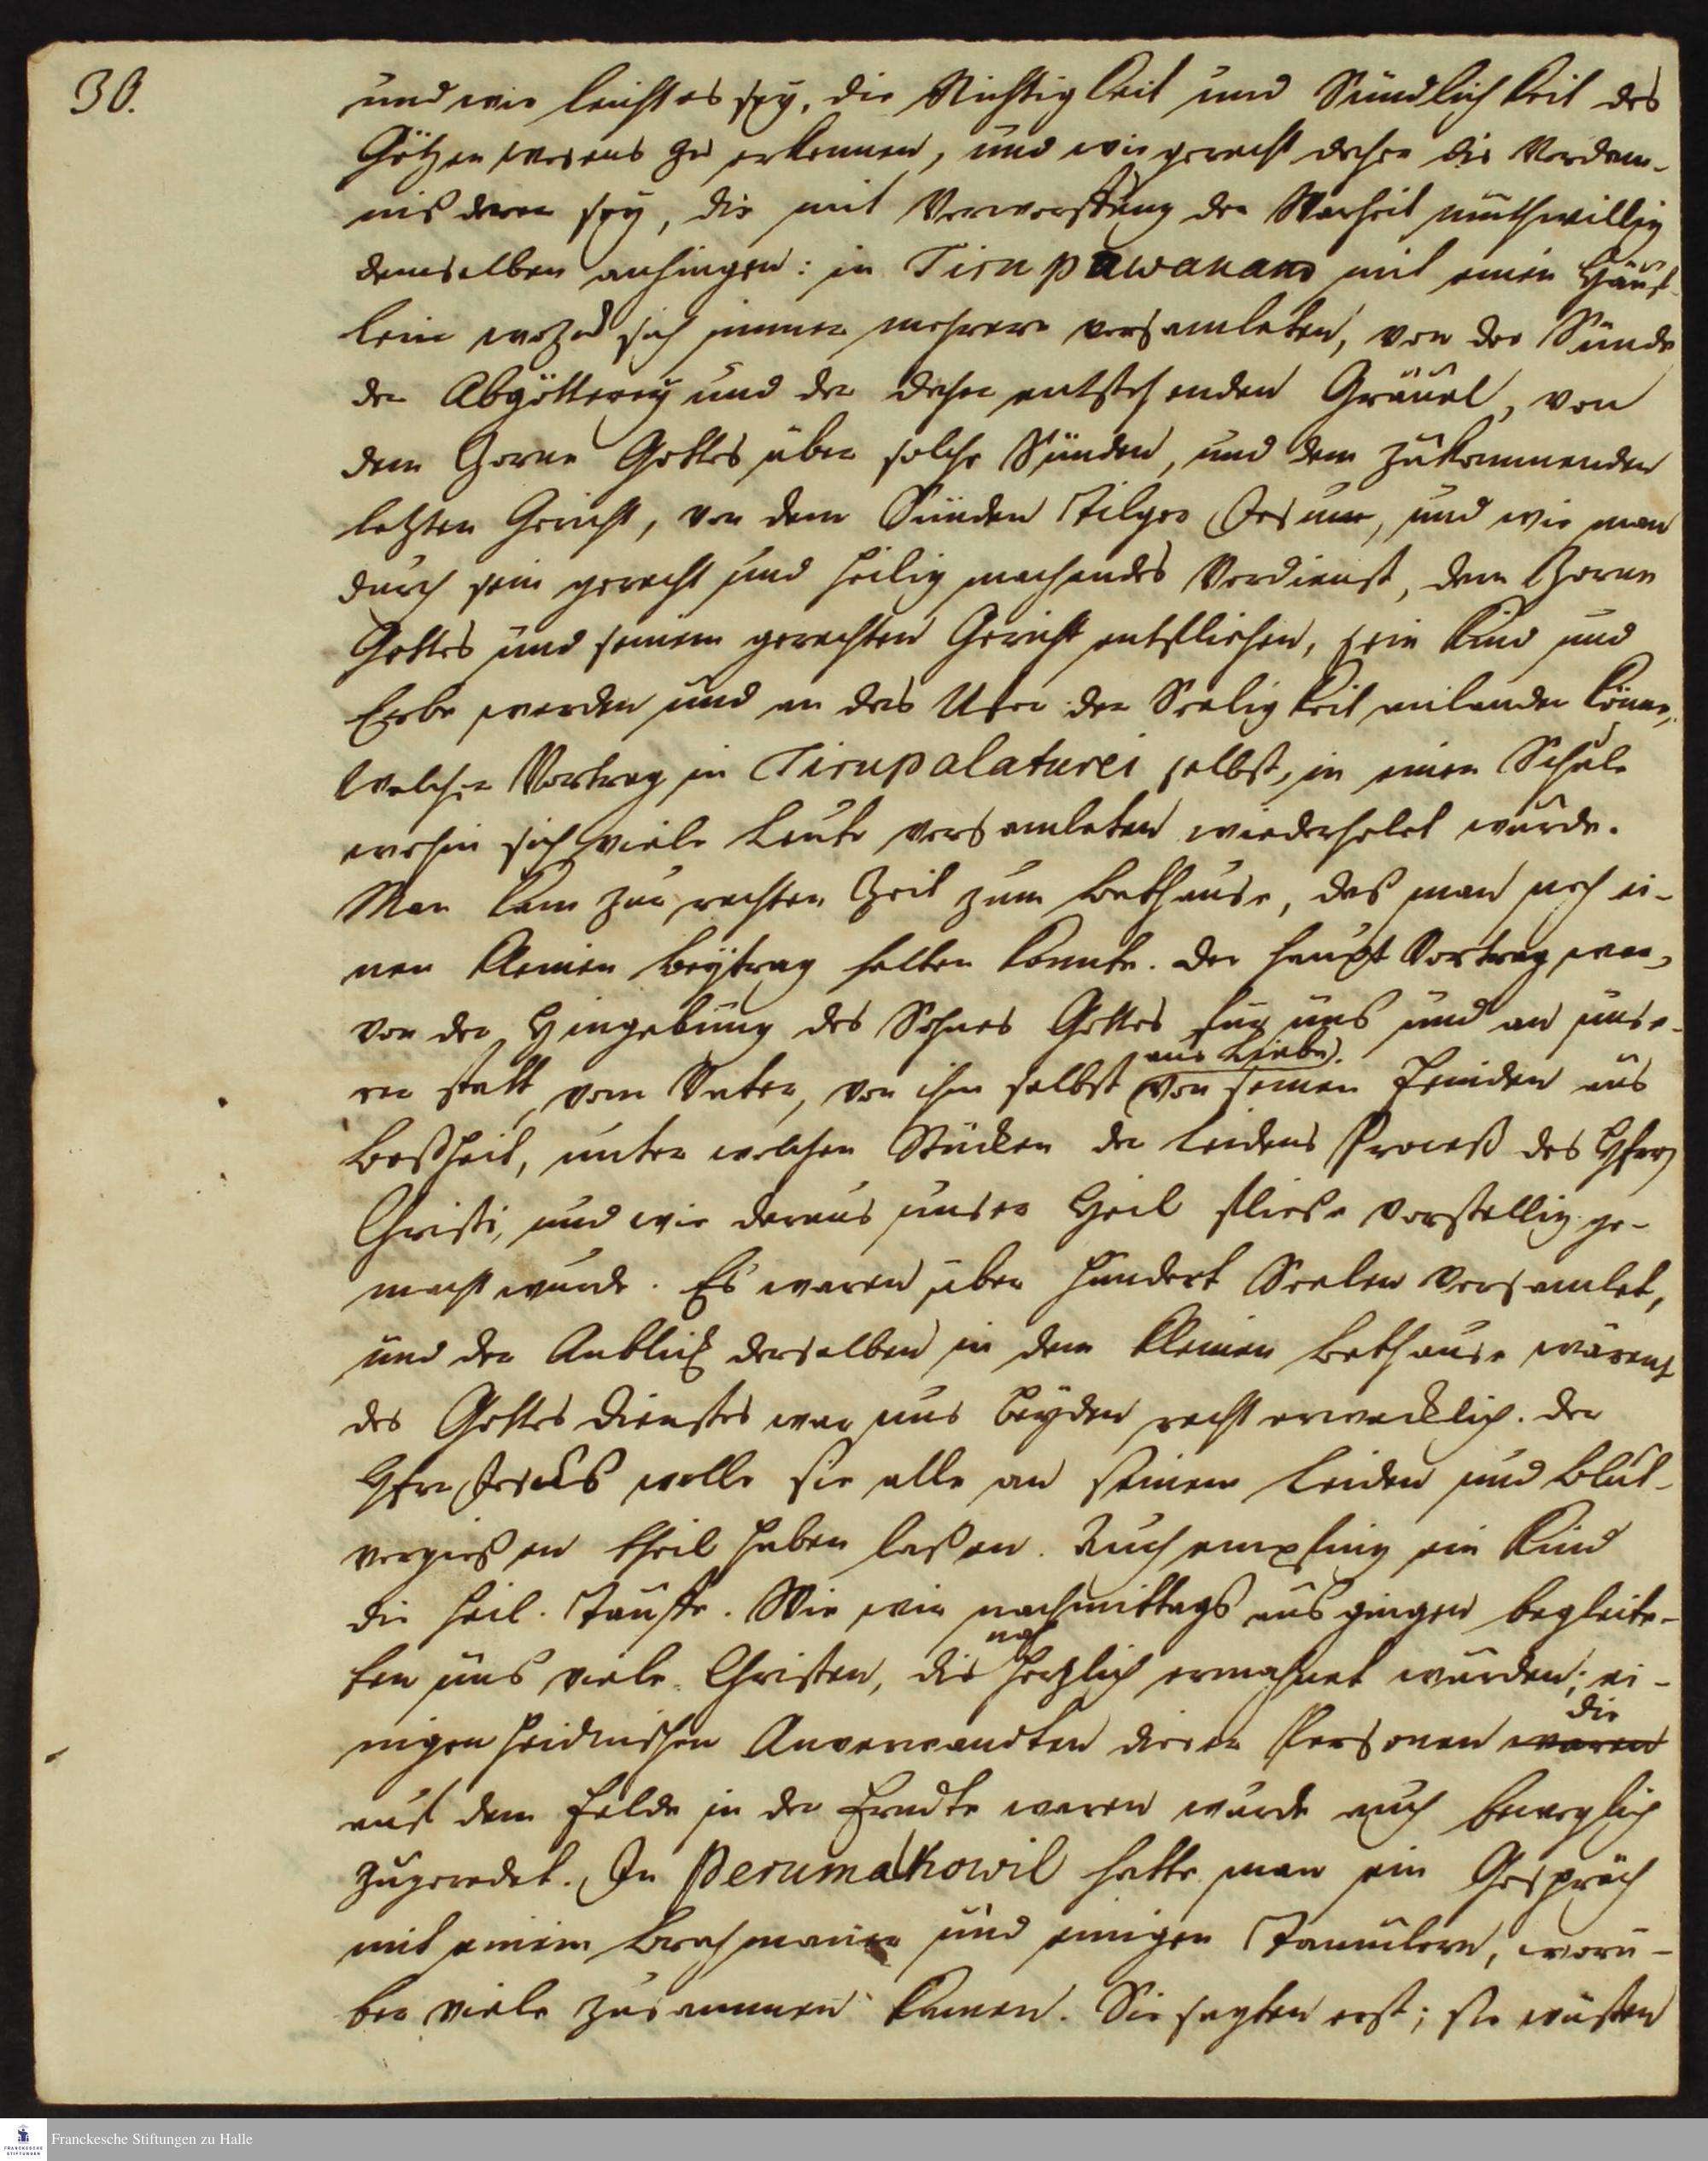 30.
und wie leicht es sey, die Nichtigkeit und Sündlichkeit des
Götzenwesens zu erkennen, und wie gerecht daher die Verdam-
niß derer sey, die mit Verwerffung der Warheit muthwillig
demselben anhingen: in Tirupuwanam mit einem Häuf-
lein wozu sich immer mehrere versamleten, von der Sünde
der Abgötterey und der daher entstehenden Gräuel, von
dem Zorne Gottes über solche Sünden, und dem zukommenden
letzten Gericht, von dem Sünden Tilger Jesum, und wie man
durch sein gerecht und heilig machendes Verdienst, dem Zorne
Gottes und seinem gerechten Gericht entfliehen, sein Kind und
Erbe werden und an das Ufer der Seeligkeit anlanden könne,
welcher Vortrag in Tirupalaturei selbst, in einer Schule
wohin sich viele Leute versamleten wiederholet wurde.
Man kam zur rechten Zeit zum Bethause, daß man noch ei-
nen kleinen Beytrag halten konnte. Der Haupt Vortrag war,
von der Hingebung des Sohnes Gottes für uns und an unse-
rer statt, vom Vater, von ihm selbst von seinen Feinden aus
aus Liebe.
Boßheit, unter welchen Stücken der Leidens Proceß des Hfrn
Christi, und wie daraus unser Heil fließe vorstellig ge-
macht wurde. Es waren über hundert Seelen versamlet,
und der Anblick derselben in dem kleinen Bethause wärend
des Gottesdienstes war uns beyden recht erwecklich. Der
Hfrr Jesus wolle sie alle an seinem Leiden und Blut-
vergießen theil haben laßen. Auch empfing ein Kind
die heil. Tauffe. Wie wir nachmittags aus gingen begleite-
ten uns viele Christen, die noch herzlich ermahnet wurden; ei-
nigen heidnischen Anverwandten dieser Personen waren die
auf dem Felde in der Erndte waren wurde auch beweglich
zugeredet. In Perumalkowil hatte man ein Gespräch
mit einem Brahmaner und einigen Tamulern, worü-
ber viele zusammen kamen. Sie sagten erst; sie wüsten
Franckesche Stiftungen zu Halle